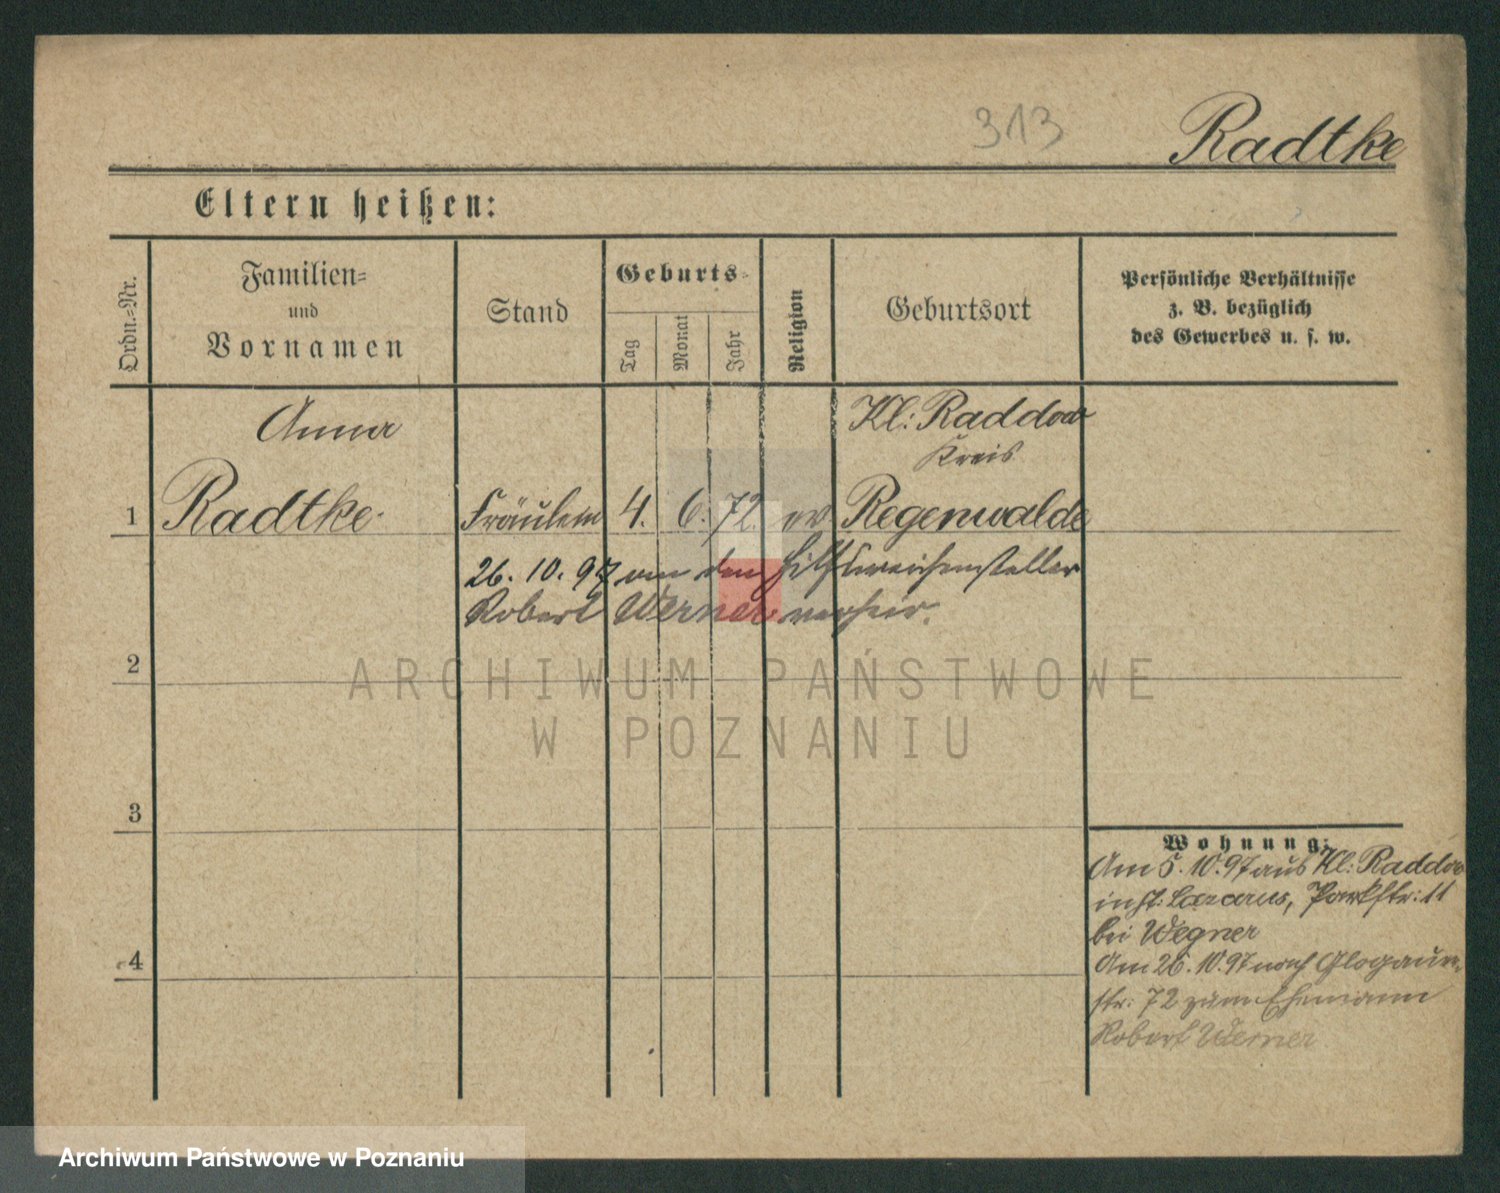 313
Radtke
Eltern heißen:
Ordn.=Nr.
Familien=
und
Vornamen
Stand
Geburts=
Tag
Monat
Jahr
Religion
Geburtsort
Persönliche Verhältnisse
z. B. bezüglich
des Gewerbes u. s. w.
Anna
Kl: Raddow
Kreis
1 Radtke. Fräulein 4. 6. 72. ev Regenwalde
26. 10. 97 an den Hilfsweichensteller
Robert Werner verheir.
ARCHIWUM PAŃSTWOWE
W POZNANIU
2
3
4
Wohnung:
Am 5. 10. 97 aus Kl: Raddow
in St: Lazarus, Parkstr: 11
bei Wegner
Am 26. 10. 97 nach Glogauer
str: 72 zum Ehemann
Robert Werner
Archiwum Państwowe w Poznaniu